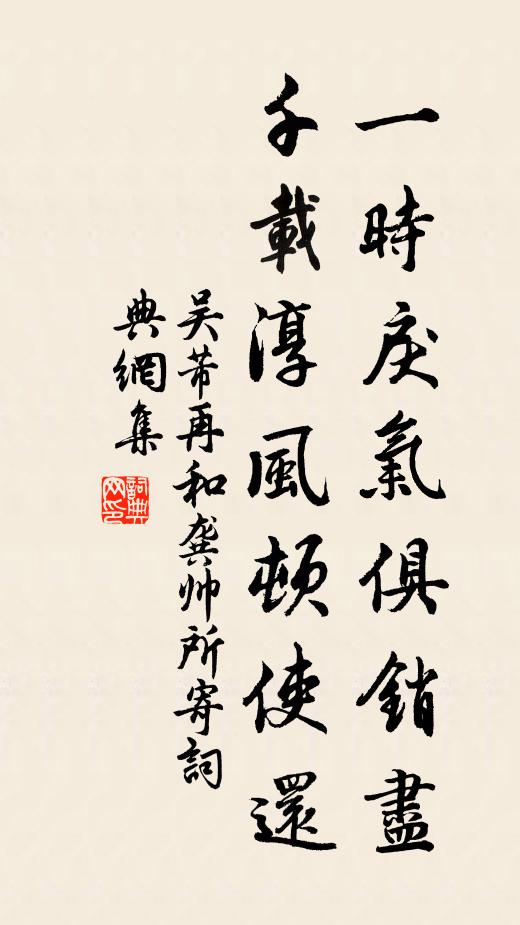 一時戾氣俱銷盡
千載淳風頓使還
吴芾再和龔帅所寄詞
典網集
詞典网印